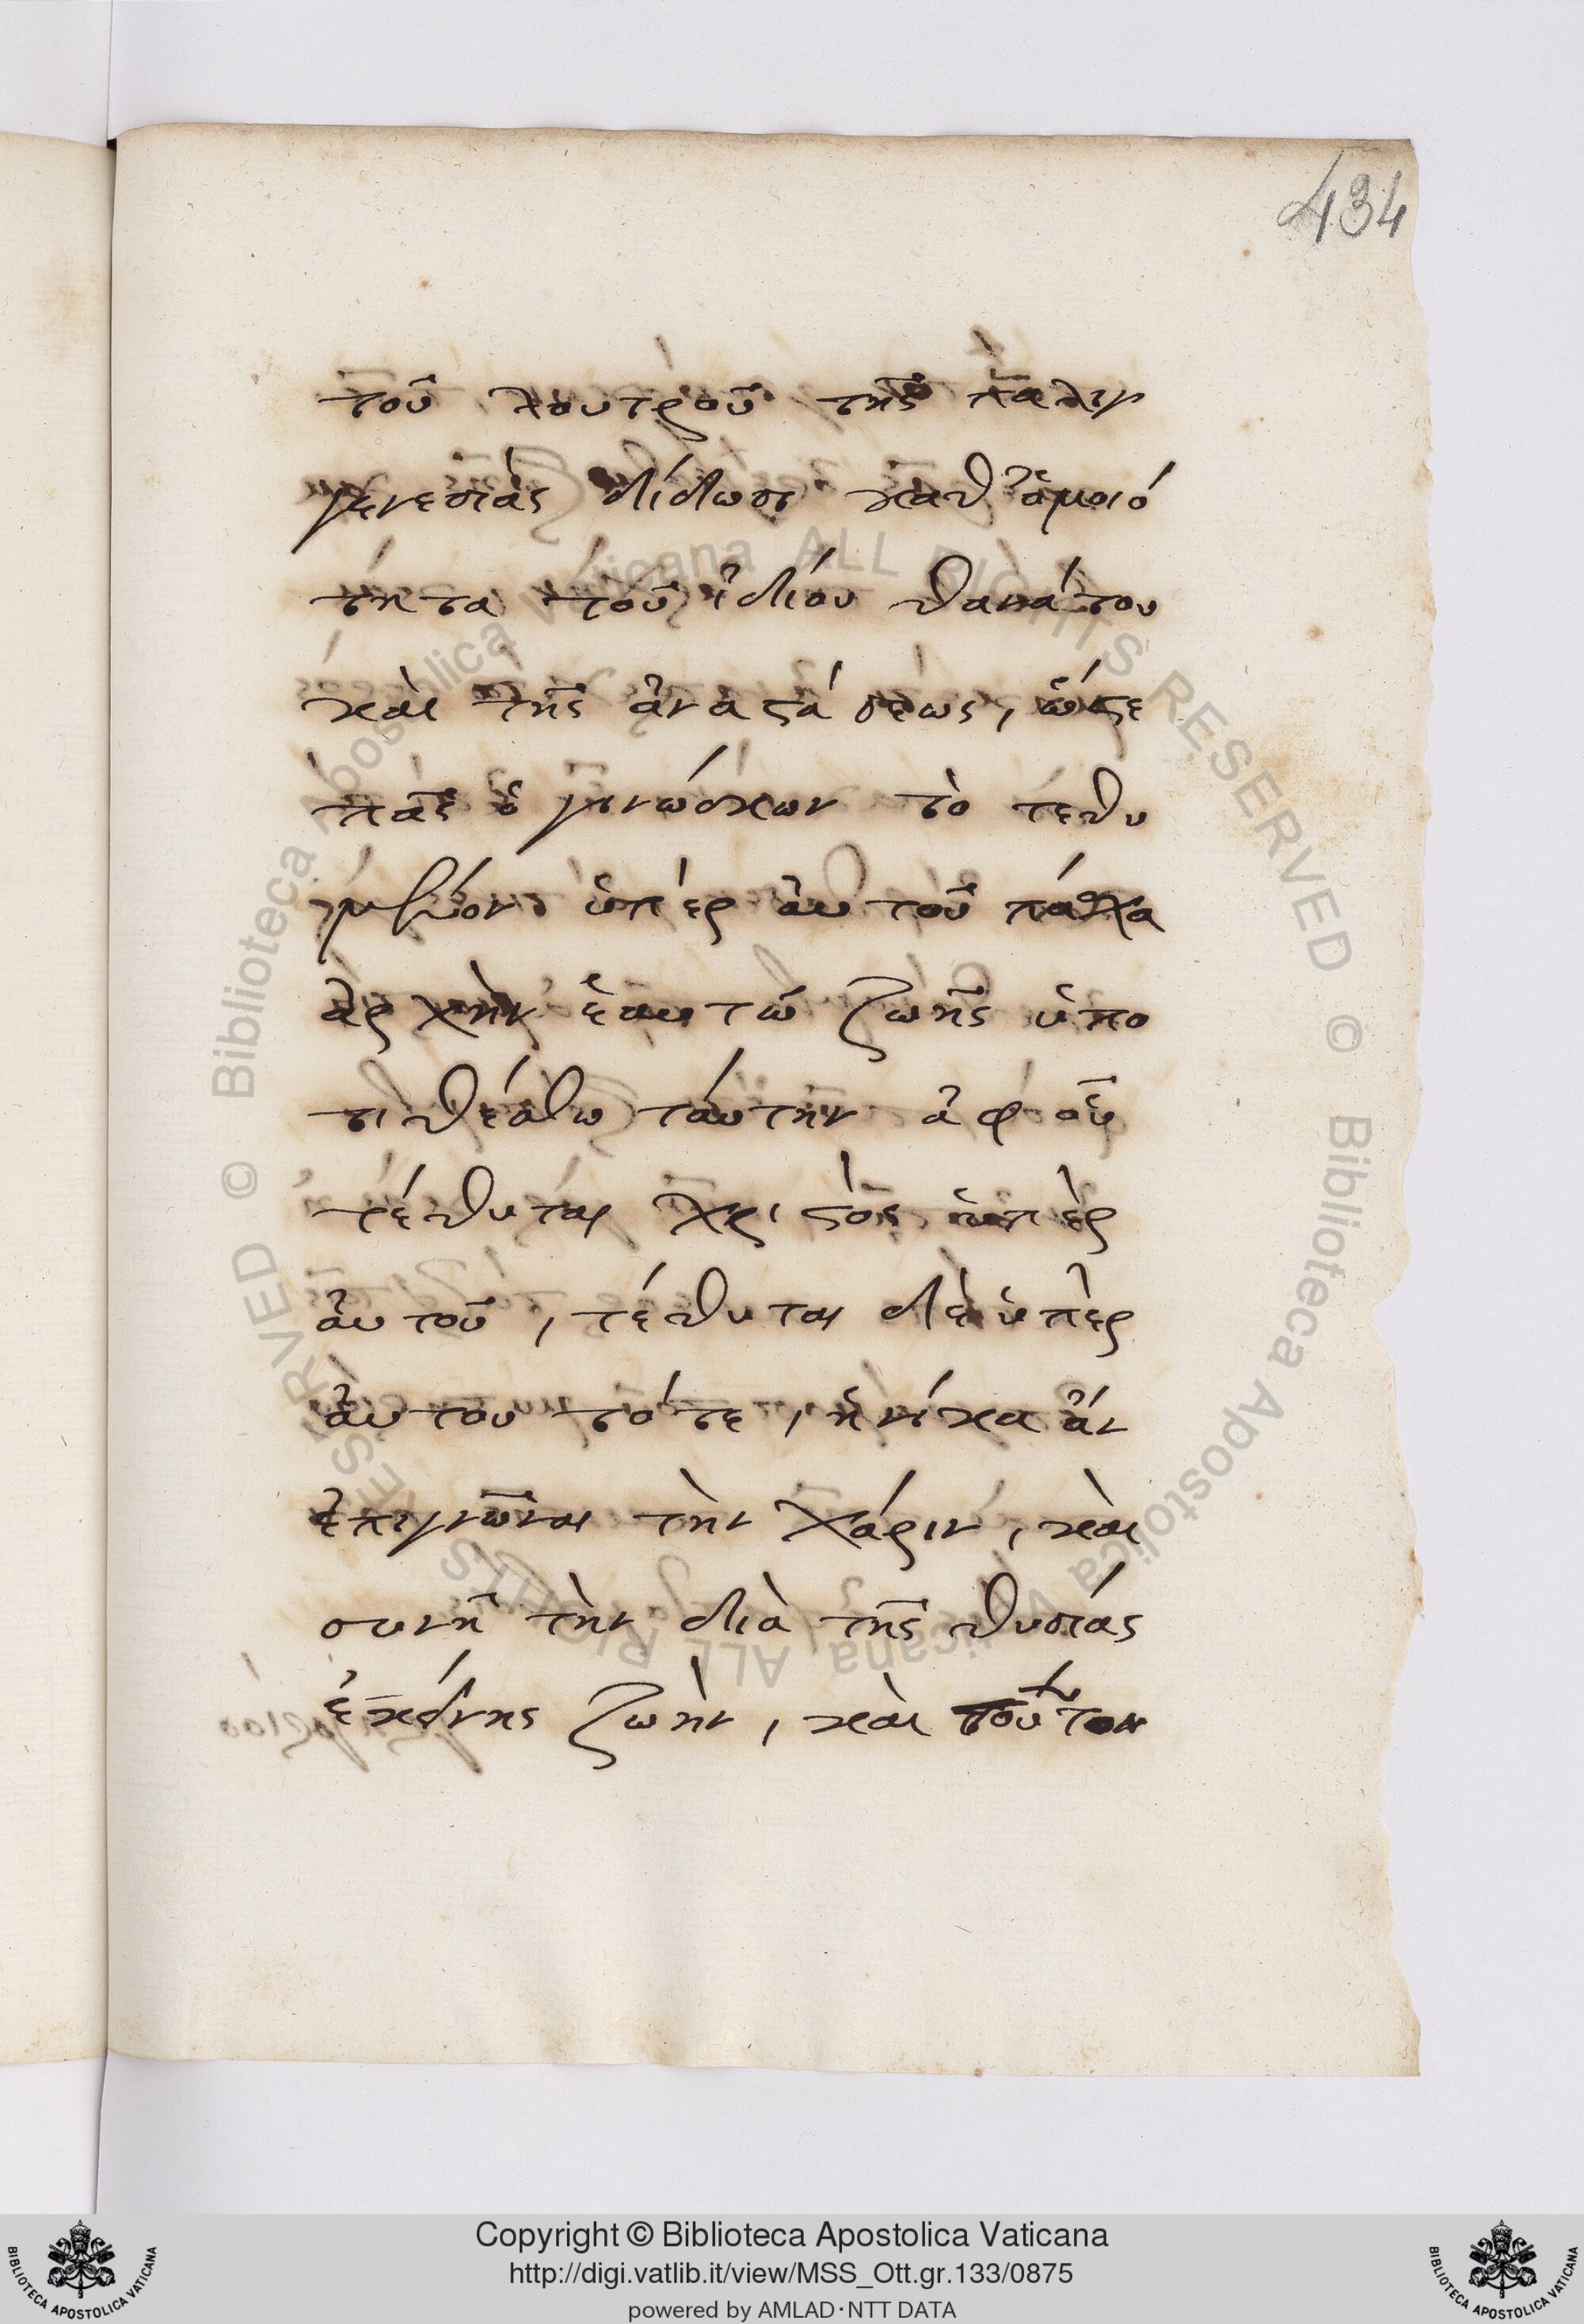 434
τοῦ λουτροῦ τῆς παλιγ
γενεσίας δίδωσι καθ ὁμοιό
τητα τοῦ ἰδίου θανάτου
καὶ τῆς ἀναστάσεως, ὥστε
πᾶς ὁ γινώσκων τὸ τεθυ
μένον ὑπὲρ αὐτοῦ πάσχα
ἀρχὴν ἑαυτῶ ζωῆς ὑπο
τιθέσθω ταύτην ἀφ οὗ
τέθυται χριστὸς ὑπὲρ
αὐτοῦ, τέθυται δὲ ὑπὲρ
αὐτου τότε, ἡνίκα ἂν
ἐπιγνῶναι τὴν χάριν, καὶ
συνῆ τὴν διὰ τῆς θυσίας
ἐκείνης ζωὴν, καὶ
Copyright © Biblioteca Apostolica Vaticana
http://digi.vatlib.it/view/MSS_Ott.gr.133/0875
powered by AMLAD·NTT DATA
BIBLIOTECA APOSTOLICA VATICANA
BIBLIOTECA APOSTOLICA VATICANA
© Biblioteca Apostolica Vaticana ALL RIGHTS RESERVED © Biblioteca Apostolica Vaticana ALL RIGHTS RESERVED